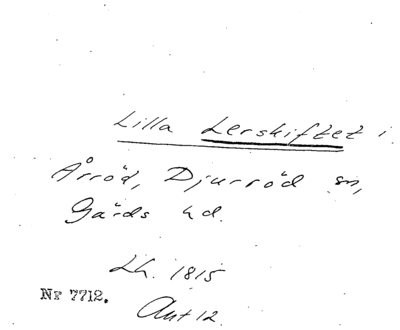 Lilla Lerskiftet i
Årröd, Djurröd sn,
Gärds hd.
Lh. 1815
Nr 7712.
Ant 12